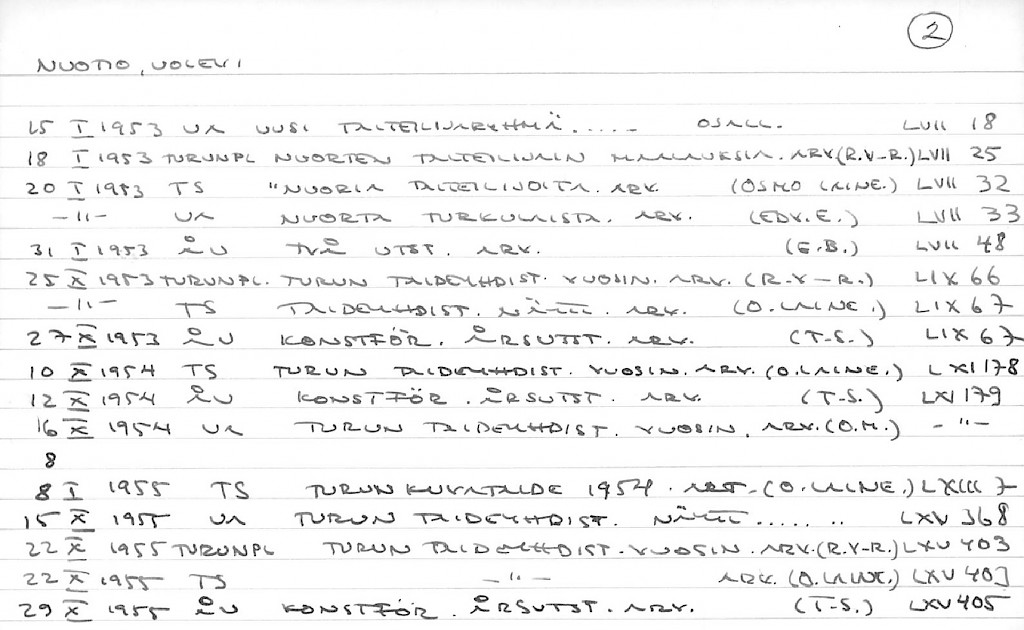 2
NUOTIO, UOLEVI
15 I 1953 UA UUSI TAITEILIJARYHMÄ..... OSALL. LVII 18
18 I 1953 TURUNPL NUORTEN TAITEILIJAIN MAALAUKSIA. ARV.(R.V-R.) LVII 25
20 I 1953 TS "NUORIA TAITEILIJOITA. ARV. (OSMO LAINE.) LVII 32
-"- UA NUORTA TURKULAISTA. ARV. (EDV.E.) LVII 33
31 I 1953 ÅU TVÅ UTST. ARV. (E.B.) LVII 48
25 X 1953 TURUNPL. TURUN TAIDEYHDIST. VUOSIN. ARV. (R.V-R.) LIX 66
-"- TS TAIDEYHDIST. NÄYTT. ARV. (O.LAINE.) LIX 67
27 X 1953 ÅU KONSTFÖR. ÅRSUTST. ARV. (T-S.) LIX 67
10 X 1954 TS TURUN TAIDEYHDIST. VUOSIN. ARV. (O.LAINE.) LXI 178
12 X 1954 ÅU KONSTFÖR. ÅRSUTST. ARV. (T-S.) LXI 179
16 X 1954 UA TURUN TAIDEYHDIST. VUOSIN. ARV.(O.M.) -"-
8
8 I 1955 TS TURUN KUVATAIDE 1954. ART. (O.LAINE.) LXIII 7
15 X 1955 UA TURUN TAIDEYHDIST. NÄYTT...... .. LXV 368
22 X 1955 TURUNPL TURUN TAIDEYHDIST. VUOSIN. ARV.(R.V-R.) LXV 403
22 X 1955 TS -"- ARV. (O.LAINE.) LXV 403
29 X 1955 ÅU KONSTFÖR. ÅRSUTST. ARV. (T-S.) LXV 405